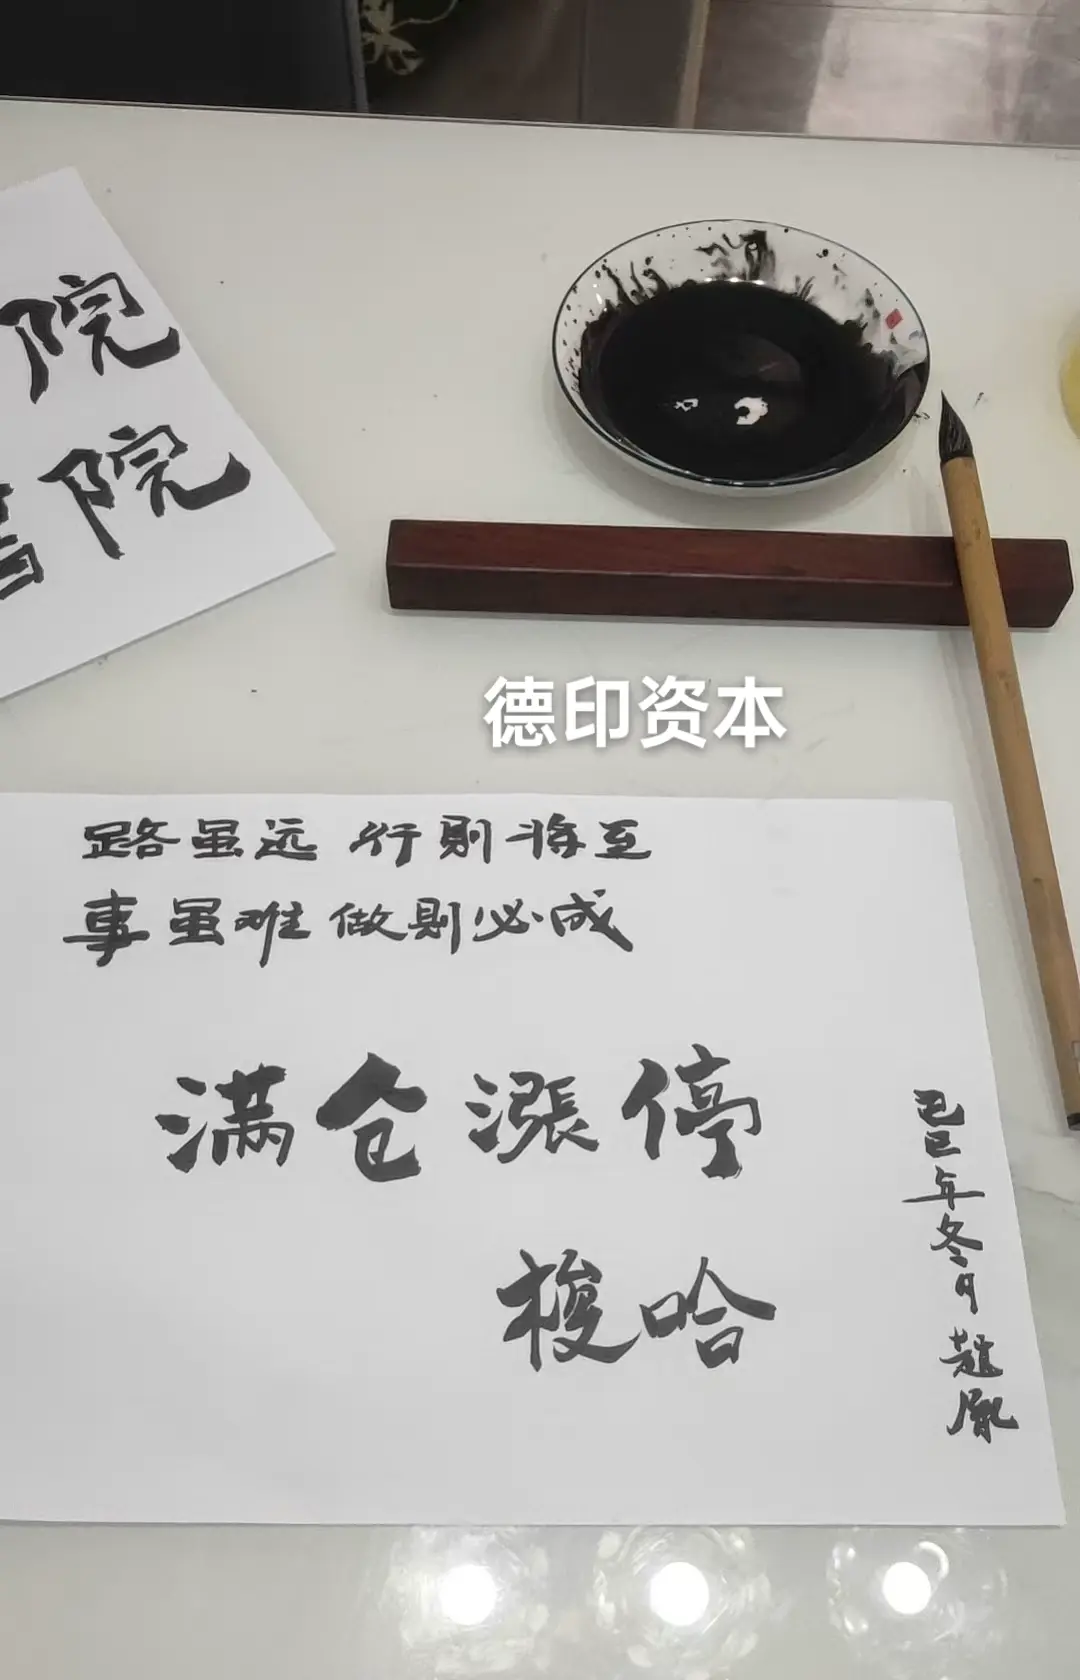 院
院
德印资本
路虽远 行则将至
事虽难 做则必成
满仓漲停
梭哈
年冬月 趙胤